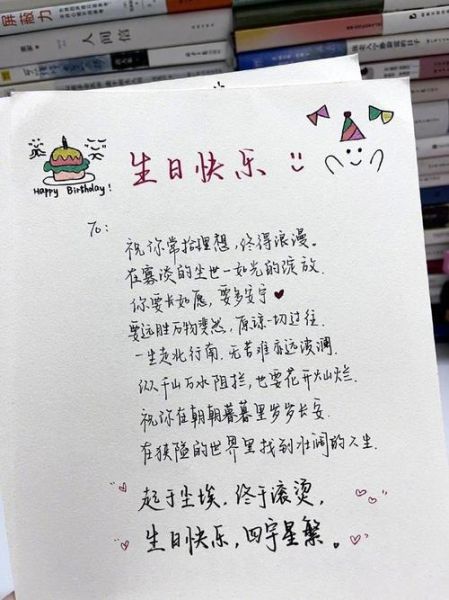 屏蔽力
人间信
Happy Birthday!
生日快乐
To:
祝你常拾理想，终得浪漫。
在寡淡的尘世一如光的绽放.
你要长如愿，要多安宁
要远胜万物璨然，原谅一切过往.
一生走北行南，无苦难亦远波澜.
纵千山万水阻拦，也要花开灿烂.
祝你在朝朝暮暮里岁岁长安.
在狭隘的世界里找到壮阔的人生.
起于尘埃，终于滚烫，
生日快乐，四字星繁。